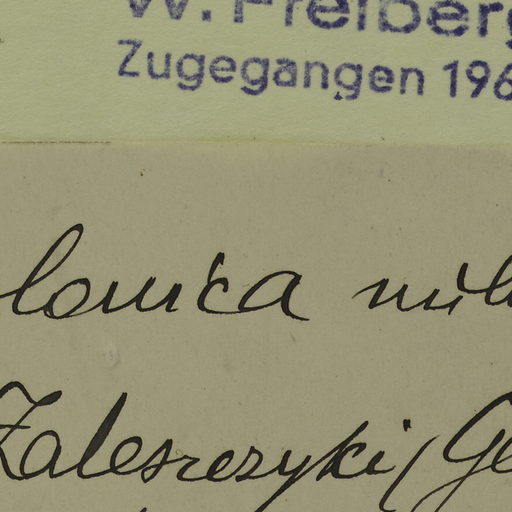 W. Freiberg
Zugegangen 196
lonica
Zaleszczyki (Ge